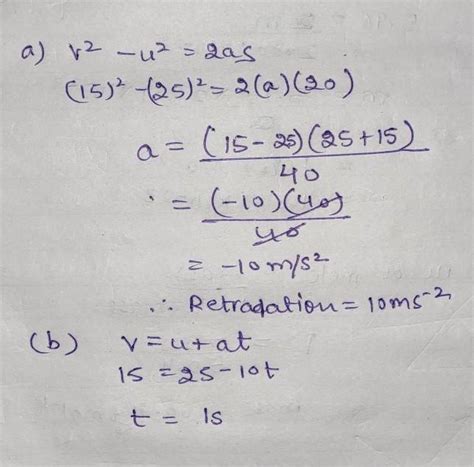 a) v² - u² = 2as
(15)² - (25)² = 2(a)(20)
a = (15-25)(25+15)
40
= (-10)(40)
40
= -10 m/s²
∴ Retradation = 10ms⁻²
(b) v = u + at
15 = 25 - 10t
t = 1s